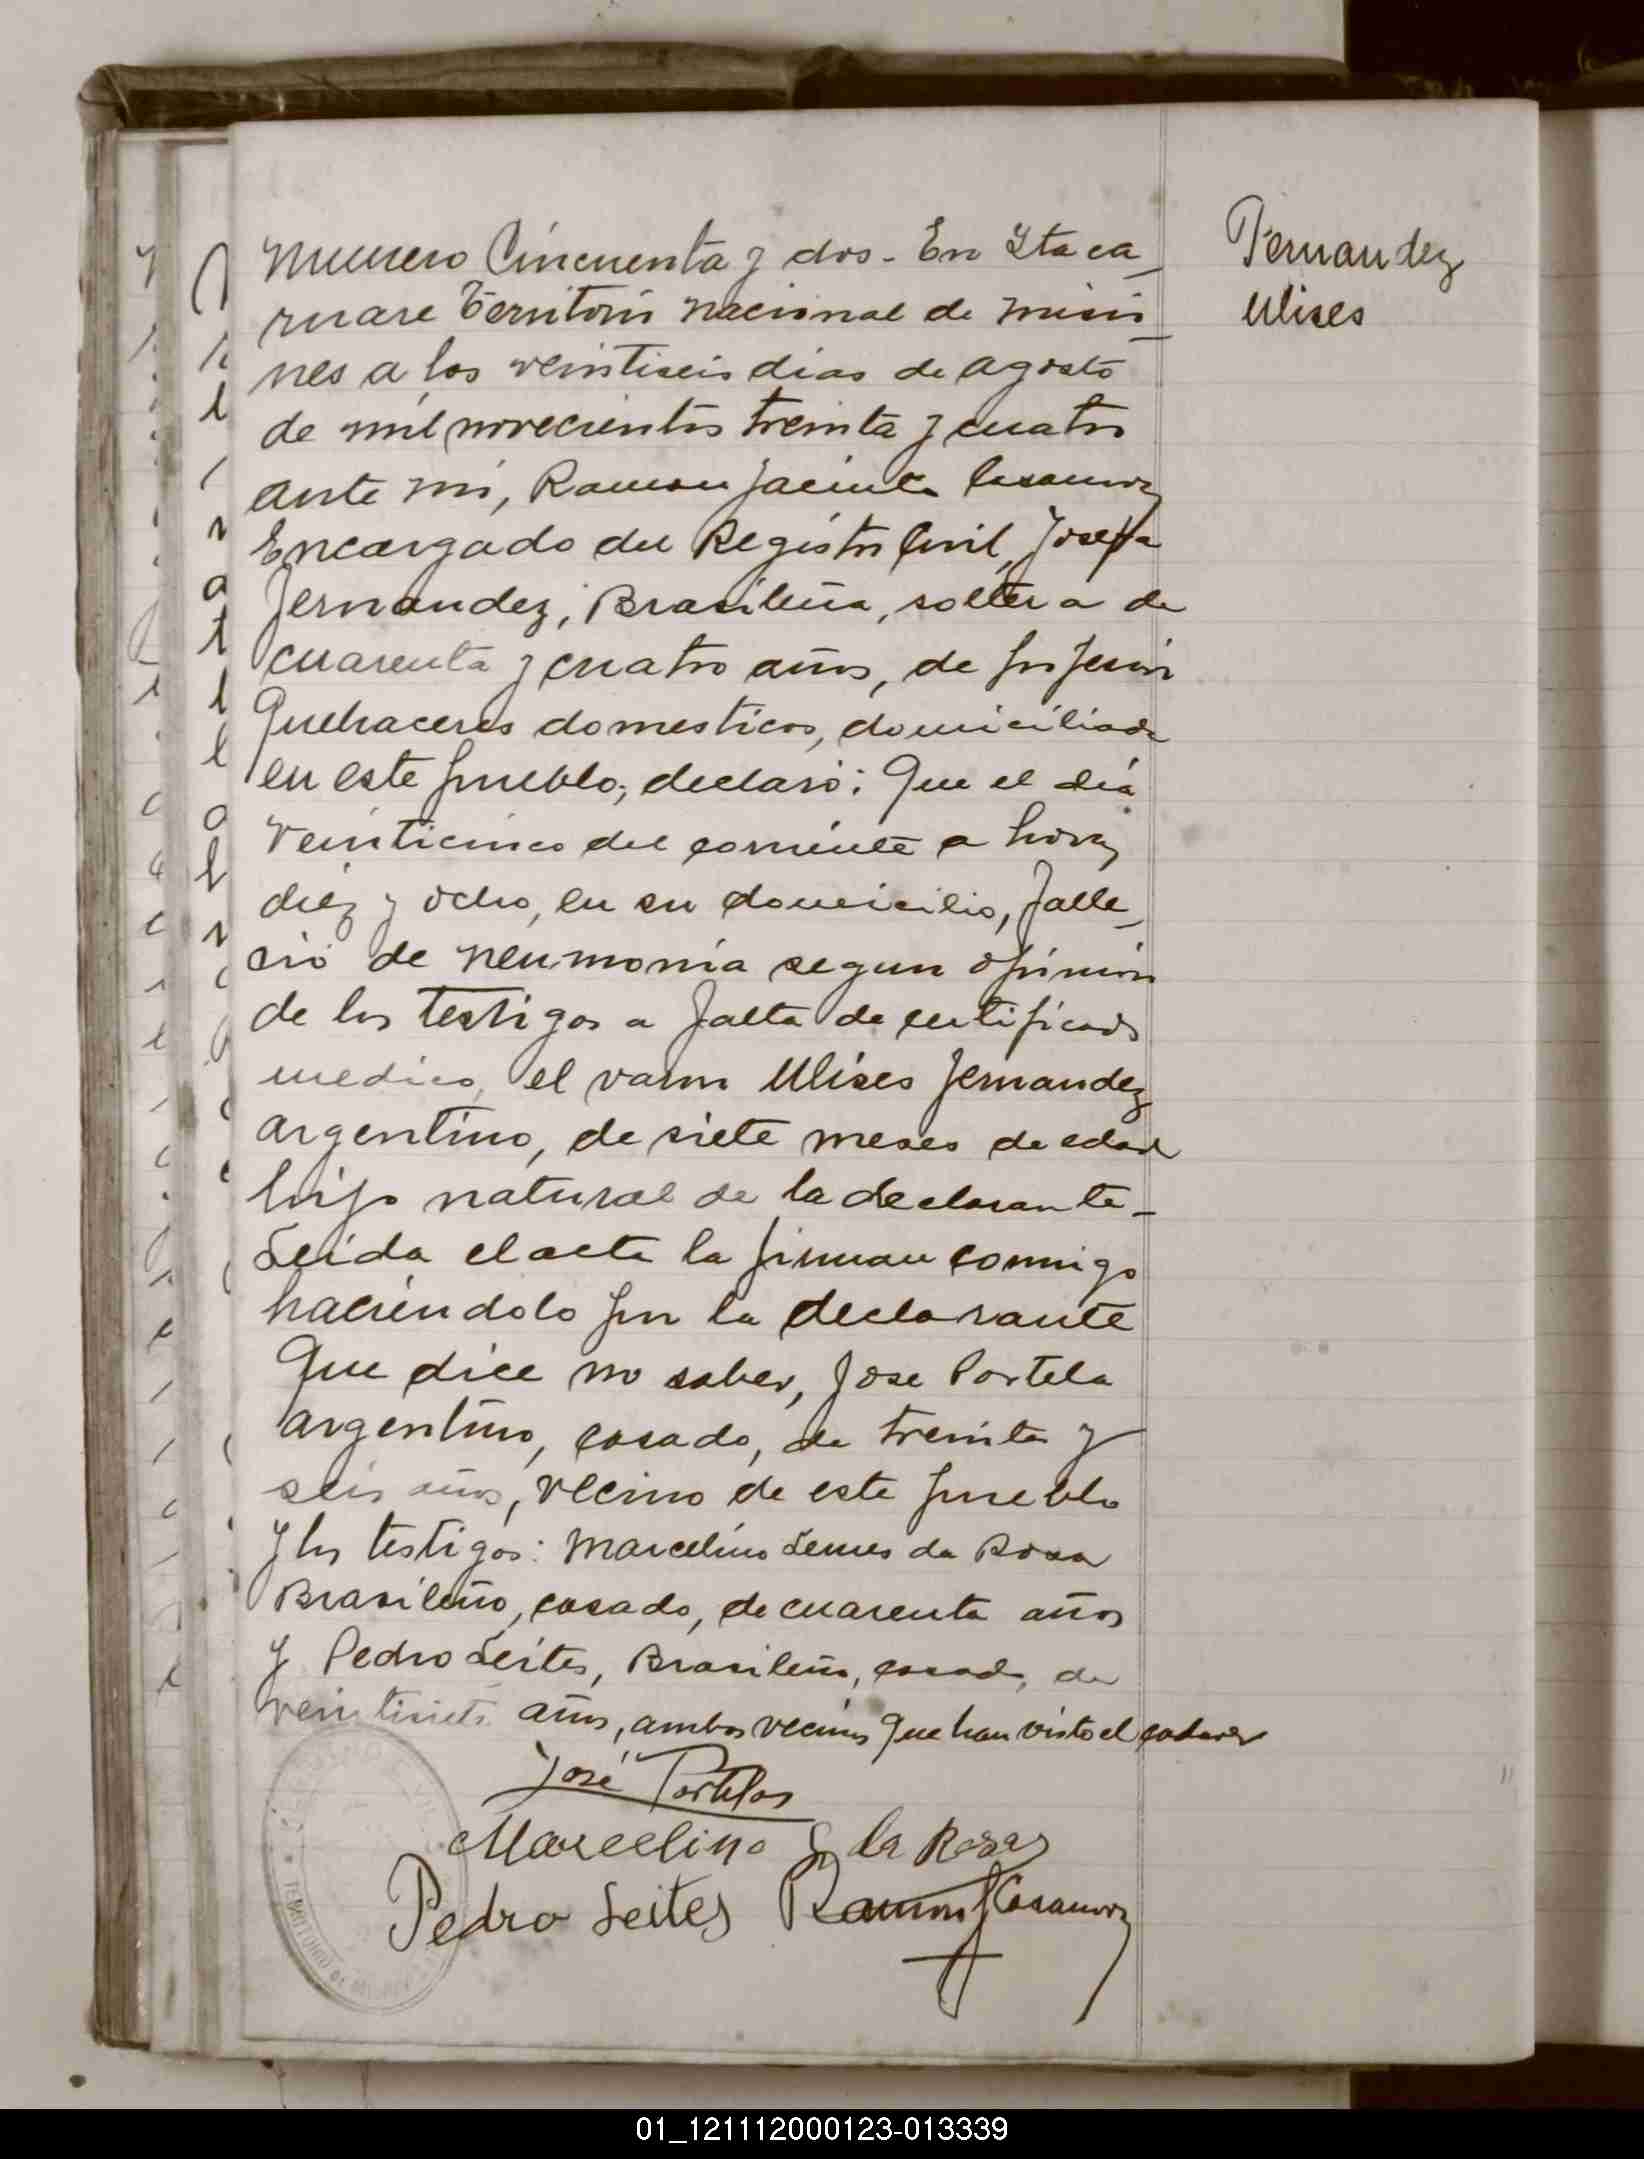 Fernandez
Ulises
Numero Cincuenta y dos - En Itaca_
ruare Territorio Nacional de Misio_
nes a los veintiseis dias de agosto
de mil novecientos treinta y cuatro
ante mi, Ramon Jacinto Casanova
Encargado del Registro Civil, Josefa
Fernandez, Brasileña, soltera de
cuarenta y cuatro años, de profesion
Quehaceres domesticos, domiciliada
en este pueblo, declaró: Que el día
veinticinco del corriente a horas
diez y ocho, en su domicilio, falle_
ció de neumonia segun opinion
de los testigos a falta de certificado
medico, el varon Ulises Fernandez
argentino, de siete meses de edad
hijo natural de la declarante_
Leida el acta la firman conmigo
haciendolo por la declarante
Que dice no saber, Jose Portela
argentino, casado, de treinta y
seis años, vecino de este pueblo
y los testigos: Marcelino Lemes da Rosa
Brasileño, casado, de cuarenta años
y Pedro Leites, Brasileño, casado, de
veintisiete años, ambos vecinos que han visto el cadaver
José Portelas
Marcelino L da Rosa
Pedro Leites Ramon J Casanova
TERRITORIO DE MISIONES
01_121112000123-013339